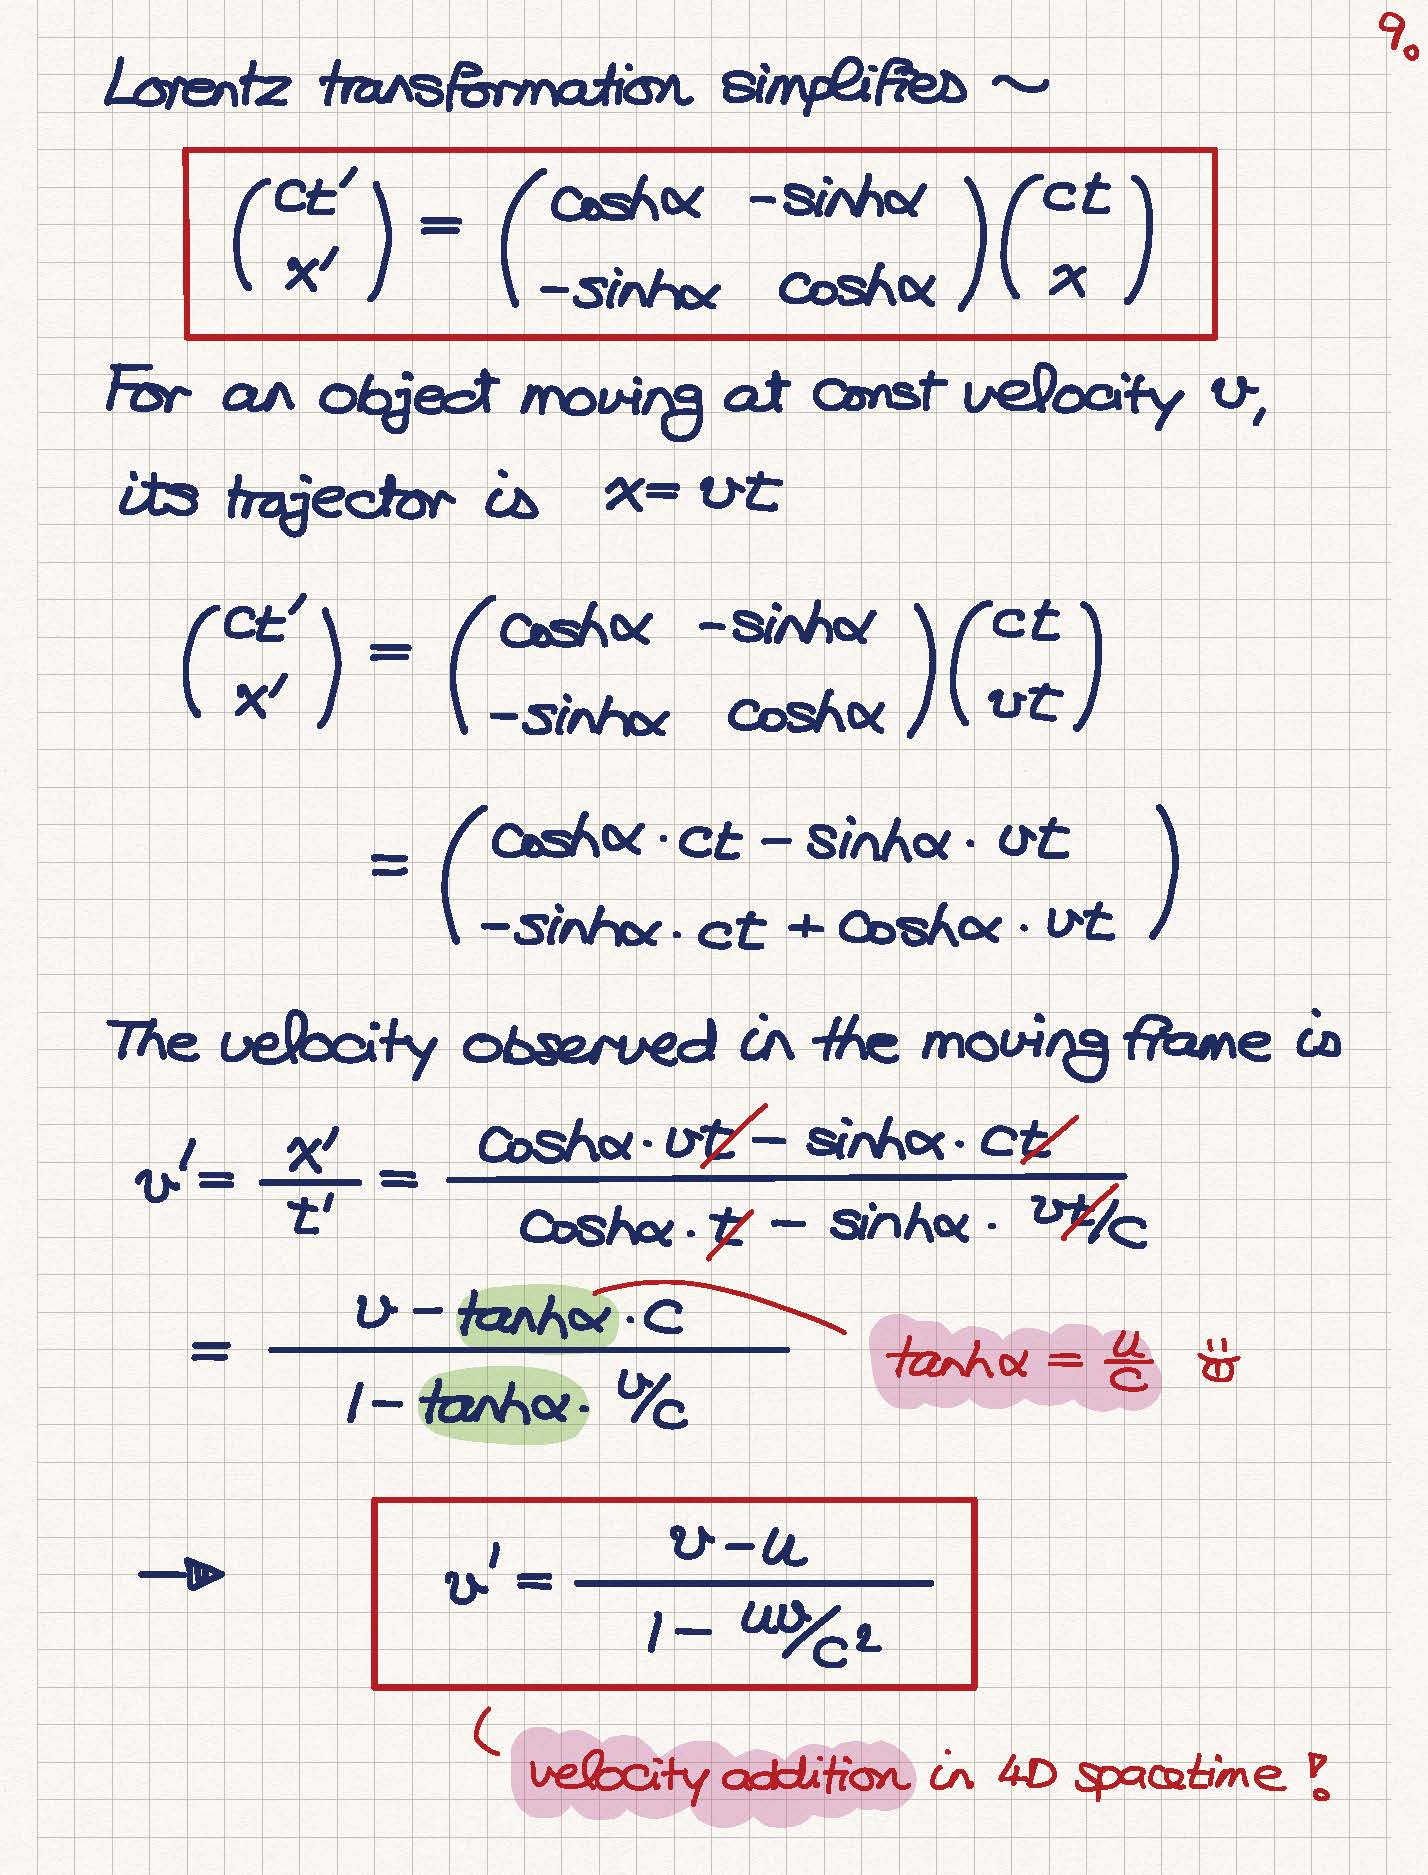 9.
Lorentz transformation simplifies ~
(ct' x') = (coshα -sinhα -sinhα coshα)(ct x)
For an object moving at const velocity v,
its trajector is x = vt
(ct' x') = (coshα -sinhα -sinhα coshα)(ct vt)
= (coshα · ct - sinhα · vt -sinhα · ct + coshα · vt)
The velocity observed in the moving frame is
v' = x'/t' = (coshα · vt - sinhα · ct)/(coshα · t - sinhα · vt/c)
= (v - tanhα · c)/(1 - tanhα · v/c) tanhα = u/c
→ v' = (v - u)/(1 - uv/c²)
velocity addition in 4D spacetime!